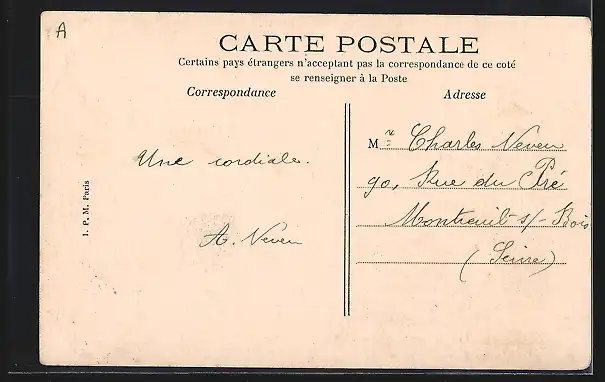 A
CARTE POSTALE
Certains pays étrangers n'acceptant pas la correspondance de ce coté
se renseigner à la Poste
Correspondance
Adresse
Une cordiale.
A. Neveu
1. P. M. Paris
Mr Charles Neveu
90, Rue du Pré
Montreuil s/- Bois
(Seine)